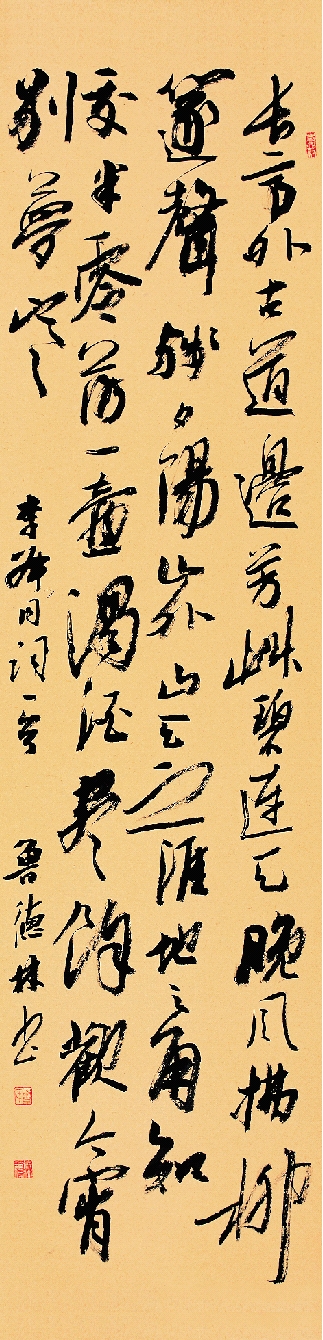 長亭外古道邊芳艸碧連天晚風拂柳
篴聲殘夕陽山外山天之涯地之角知
交半零落一壺濁酒盡餘歡今宵
别夢寒
李叔同詞一首 魯德林書